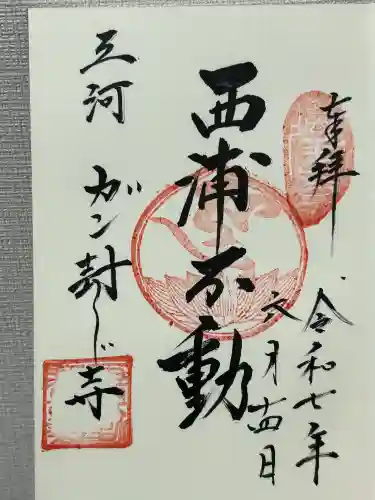 奉拝
令和七年
六月十四日
西浦不動
三河 ガン封じ寺